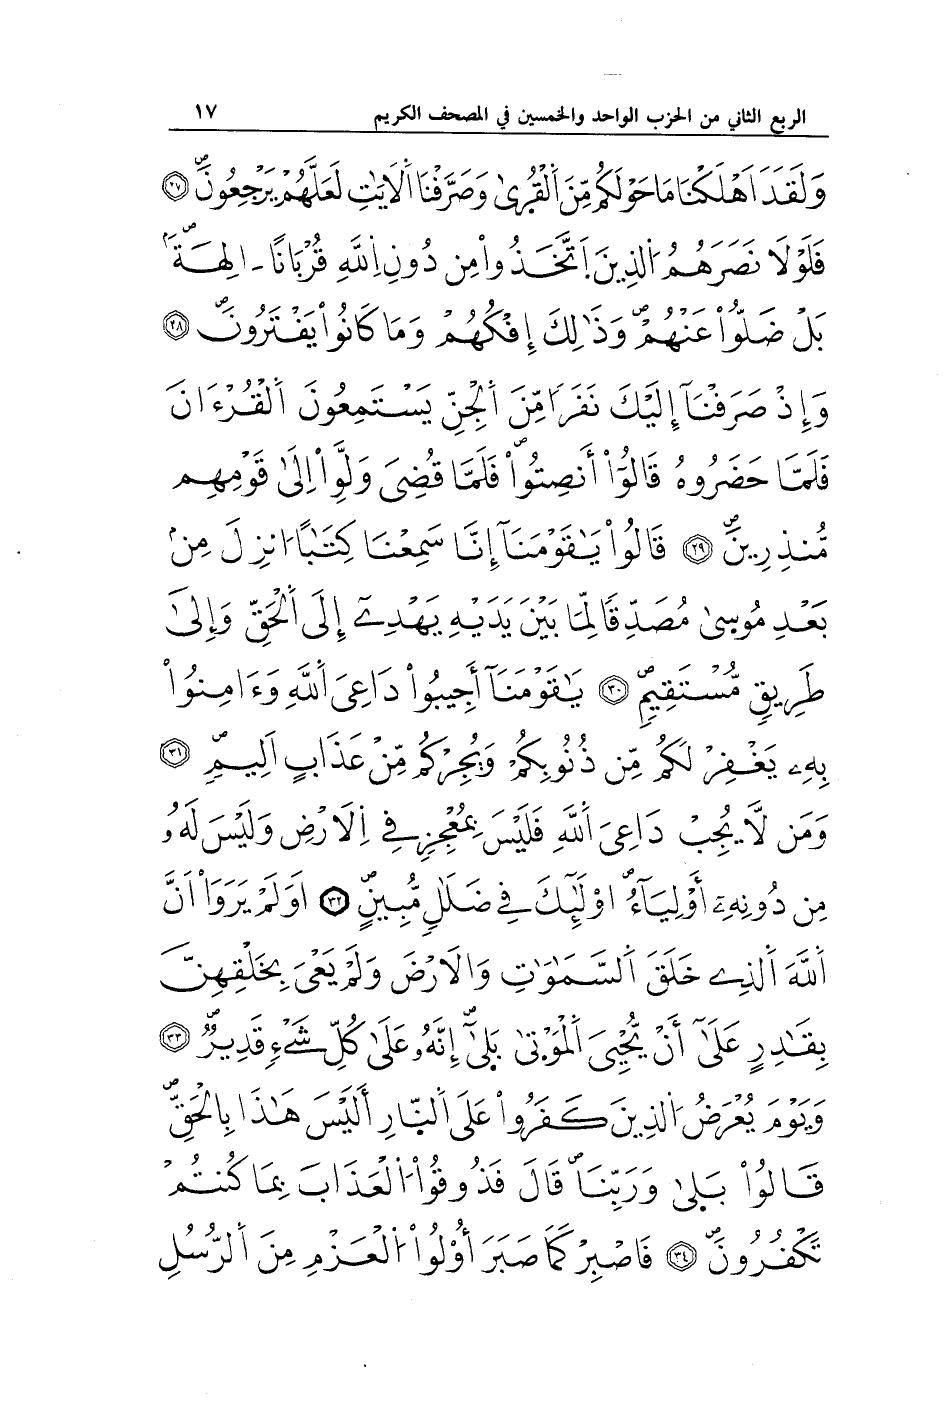 الربع الثاني من الحزب الواحد والخمسين في المصحف الكريم ١٧
وَلَقَدَ اَهْلَكْنَا مَا حَوْلَكُم مِّنَ اَلْقُر۪ىٰ وَصَرَّفْنَا اَلَايَٰتِ لَعَلَّهُمْ يَرْجِعُونَۖ ٢٧
فَلَوْلَا نَصَرَهُمُ اُلذِينَ اَتَّخَذُواْ مِن دُونِ اِللَّهِ قُرْبَاناً ـ الِهَةَۢۖ
بَلْ ضَلُّواْ عَنْهُمْۖ وَذَٰلِكَ إِفْكُهُمْ وَمَا كَانُواْ يَفْتَرُونَۖ ٢٨
وَإِذْ صَرَفْنَآ إِلَيْكَ نَفَراً مِّنَ اَلْجِنِّ يَسْتَمِعُونَ اَلْقُرْءَانَ
فَلَمَّا حَضَرُوهُ قَالُوٓاْ أَنصِتُواْۖ فَلَمَّا قُضِيَ وَلَّوِاْ اِلَىٰ قَوْمِهِم
مُّنذِرِينَۖ ٢٩ قَالُواْ يَٰقَوْمَنَآ إِنَّا سَمِعْنَا كِتَٰباً انزِلَ مِنۢ
بَعْدِ مُوس۪ىٰ مُصَدِّقاً لِّمَا بَيْنَ يَدَيْهِ يَهْدِےٓ إِلَى اَلْحَقِّ وَإِلَىٰ
طَرِيقٍ مُّسْتَقِيمٍۖ ٣٠ يَٰقَوْمَنَآ أَجِيبُواْ دَاعِيَ اَللَّهِ وَءَامِنُواْ
بِهِۦ يَغْفِرْ لَكُم مِّن ذُنُوبِكُمْ وَيُجِرْكُم مِّنْ عَذَابٍ اَلِيمٍۖ ٣١
وَمَن لَّا يُجِبْ دَاعِيَ اَللَّهِ فَلَيْسَ بِمُعْجِزٍ فِے اِلَارْضِ وَلَيْسَ لَهُۥ
مِن دُونِهِۦٓ أَوْلِيَآءُۖ اوْلَٰٓئِكَ فِے ضَلَٰلٍ مُّبِينٍۖ ٣٢ اَوَلَمْ يَرَوَاْ اَنَّ
اَللَّهَ اَلذِے خَلَقَ اَلسَّمَٰوَٰتِ وَالَارْضَ وَلَمْ يَعْيَ بِخَلْقِهِنَّ
بِقَٰدِرٍ عَلَىٰٓ أَنْ يُّحْـِۧيَ اَلْمَوْت۪ىٰ بَل۪ىٰٓۖ إِنَّهُۥ عَلَىٰ كُلِّ شَےْءٍ قَدِيرٌۖ ٣٣
وَيَوْمَ يُعْرَضُ اُلذِينَ كَفَرُواْ عَلَى اَلنّ۪ارِ أَلَيْسَ هَٰذَا بِالْحَقِّۖ
قَالُواْ بَل۪ىٰ وَرَبِّنَاۖ قَالَ فَذُوقُواْ اُلْعَذَابَ بِمَا كُنتُمْ
تَكْفُرُونَۖ ٣٤ فَاصْبِرْ كَمَا صَبَرَ أُوْلُواْ اُلْعَزْمِ مِنَ اَلرُّسُلِ